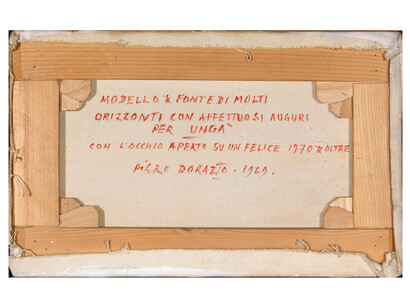 MODELLO & FONTE DI MOLTI
ORIZZONTI CON AFFETTUOSI AUGURI
PER UNGA'
CON L'OCCHIO APERTO SU UN FELICE 1970 & OLTRE
PIERO DORAZIO · 1969.